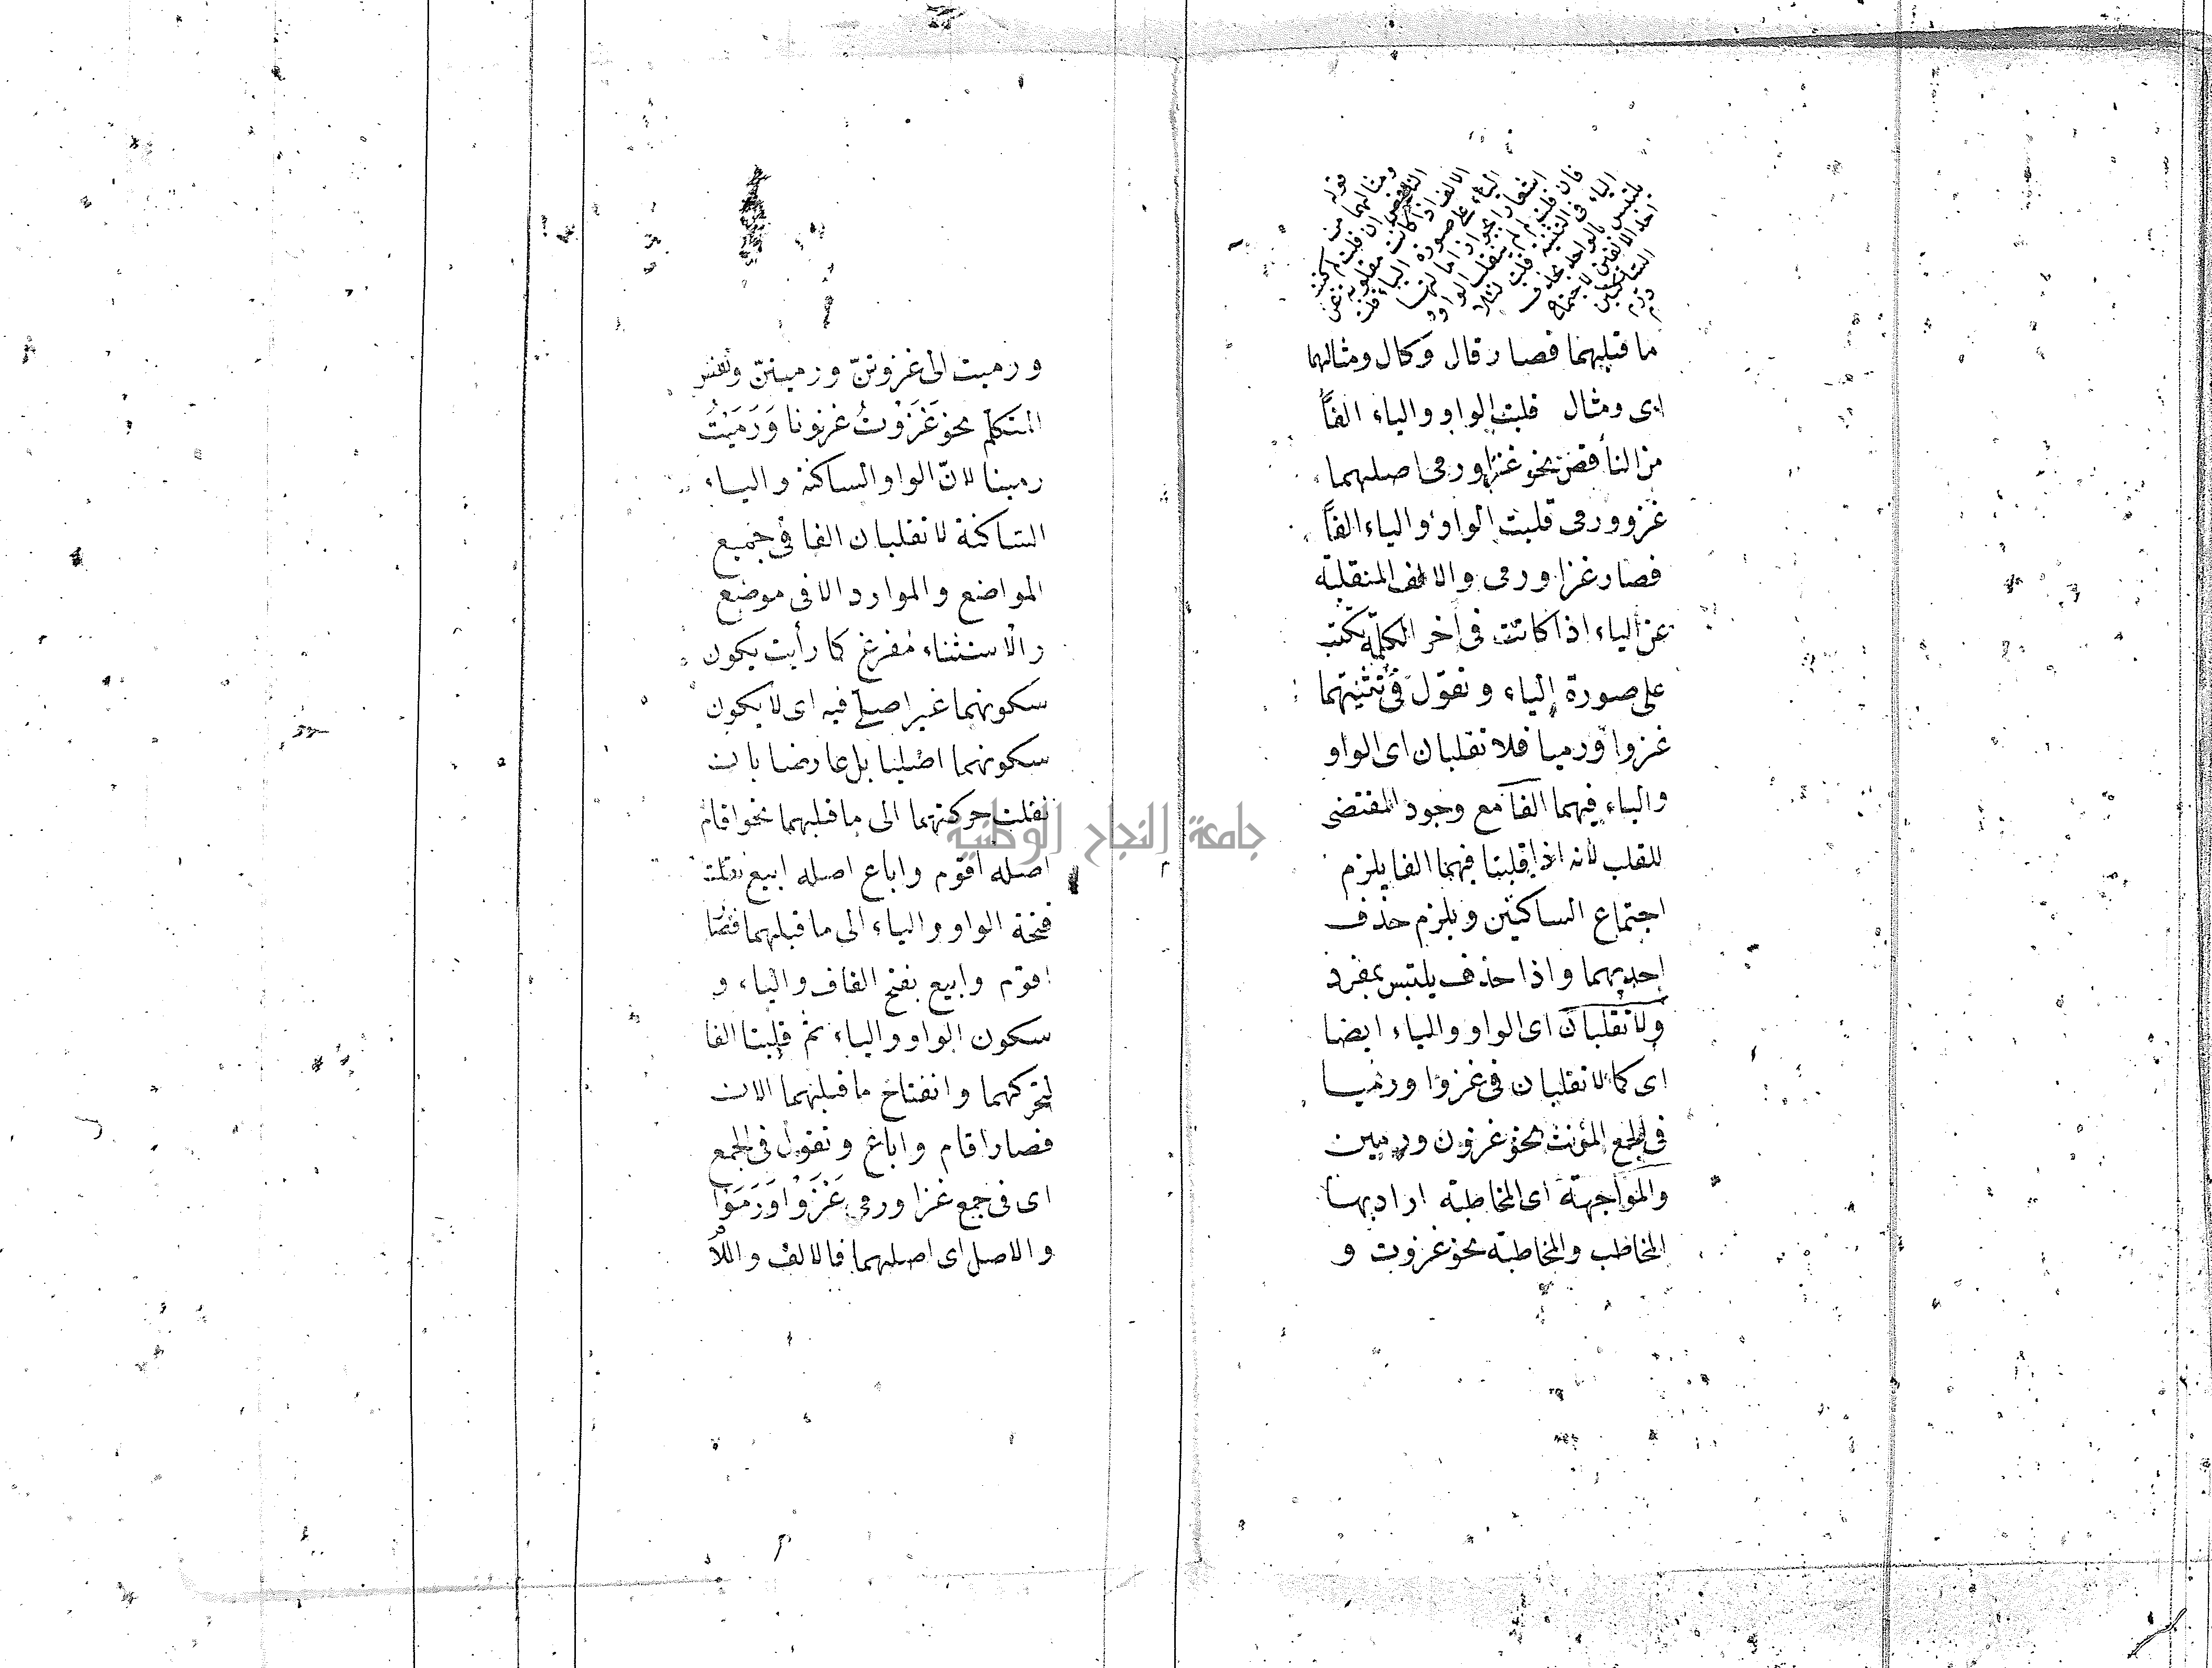 قوله
ومثالهما من
الناقص ان قلت م كتب
الالف اذا كانت مقلوبة عن
الياء على صورة الياء قلت
اشعارا بجواز امالتها
فان قلت لم لم تنقلب الواو و
الياء فى التثنية قلت لئلا
يلتبس بالواحد بحذف
احد الالفين لاجتماع
الساكنين
ما قبلهما فصار قال وكال ومثالهما
اى ومثال قلب الواو والياء الفًا
من الناقص نحو غزا ورمى اصلهما
غزو ورمى قلبت الواو والياء الفًا
فصار غزا ورمى والالف المنقلبة
عن الياء اذا كانت فى اخر الكلمة يكتب
على صورة الياء وتقول فى تثنيتهما
غزوا ورميا فلا تقلبان اى الواو
والياء فيهما الفا مع وجود المقتضى
للقلب لانه اذا قلبتا فيهما الفا يلزم
اجتماع الساكنين ويلزم حذف
احديهما واذا حذف يلتبس بمفرد
ولا تقلبان اى الواو والياء ايضا
اى كما لا تقلبان فى غزوا ورميا
فى الجمع المؤنث نحو غزون ورمين
والمواجهة اى المخاطبة اراد بها
المخاطب والمخاطبة نحو غزوت و
ورميت الى غزوتنّ ورميتنّ ونفس
المتكلم نحو غَزَوْتُ غزونا وَرَمَيْتُ
رمينا لانّ الواو الساكنة والياء
الساكنة لا تقلبان الفا فى جميع
المواضع والموارد الا فى موضع
والاستثناء مفرغ كما رأيت يكون
سكونهما غير اصلى فيه اى لا يكون
سكونهما اصليا بل عارضا بان
نقلت حركتهما الى ما قبلهما نحو اقام
اصله اقوم واباع اصله ابيع نقلت
فتحة الواو والياء الى ما قبلهما فصا
اقوم وابيع بفتح القاف والباء و
سكون الواو والياء ثم قلبتا الفا
لتحركهما وانفتاح ما قبلهما الان
فصار اقام واباع وتقول فى الجمع
اى فى جمع غزا ورمى غَزَوْا وَرَمَوْا
والاصل اى اصلهما فالالف واللا
جامعة النجاح الوطنية